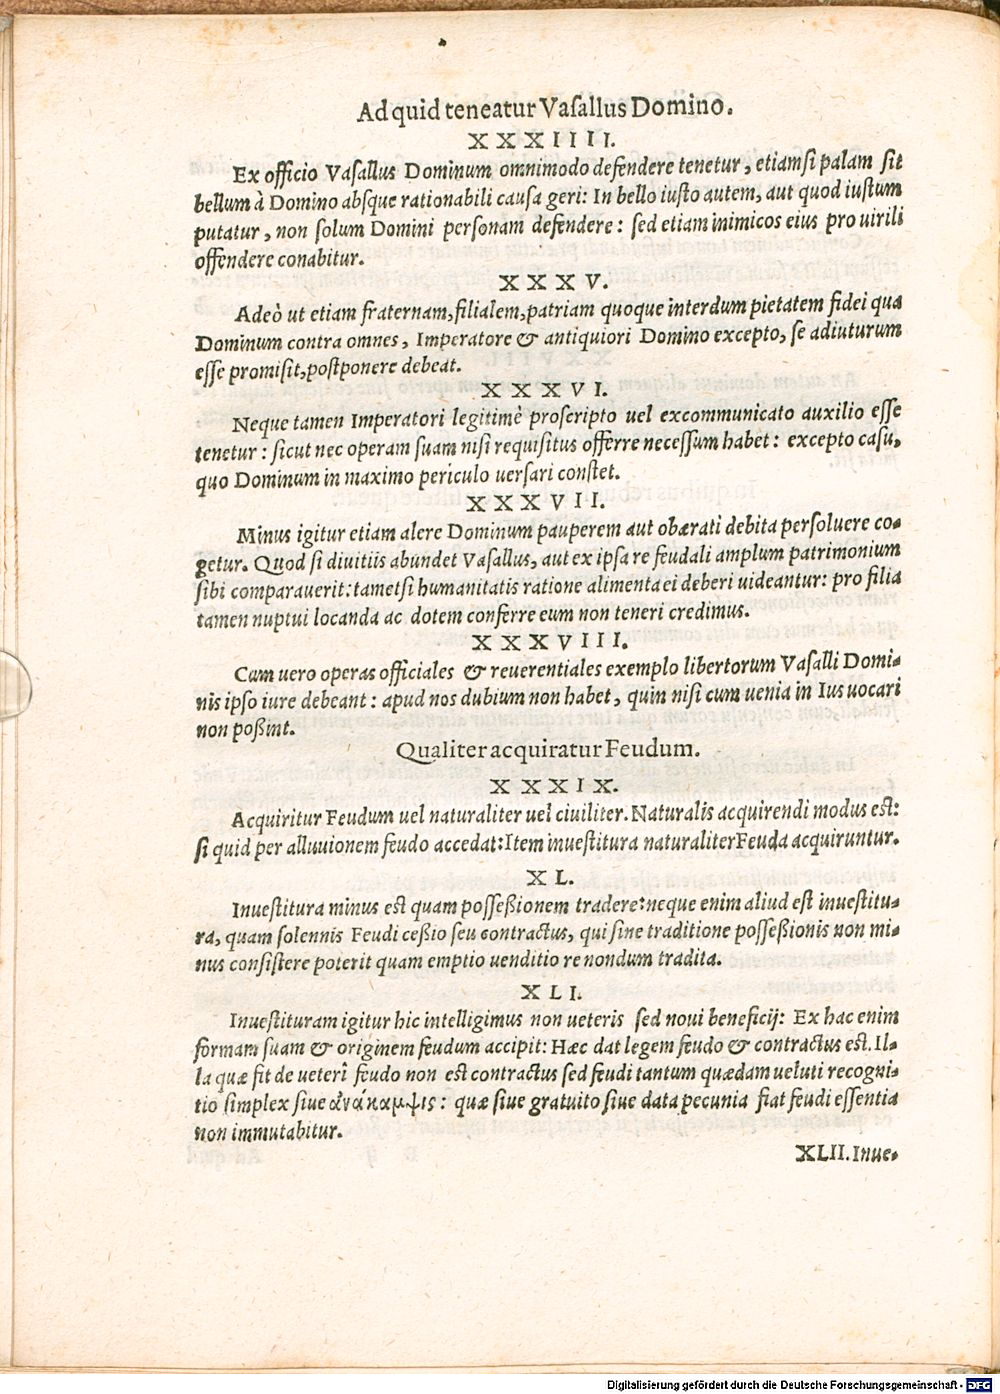 Ad quid teneatur Vaſallus Domino.
XXXIIII.
Ex officio Vaſallus Dominum omnimodo defendere tenetur, etiamſi palam ſit
bellum à Domino abſque rationabili cauſa geri: In bello iuſto autem, aut quod iuſtum
putatur, non ſolum Domini perſonam defendere: ſed etiam inimicos eius pro uirili
offendere conabitur.
XXXV.
Adeò ut etiam fraternam, filialem, patriam quoque interdum pietatem fidei qua
Dominum contra omnes, Imperatore & antiquiori Domino excepto, ſe adiuturum
eſſe promiſit, poſtponere debeat.
XXXVI.
Neque tamen Imperatori legitimè proſcripto uel excommunicato auxilio eſſe
tenetur: ſicut nec operam ſuam niſi requiſitus offerre neceſſum habet: excepto caſu,
quo Dominum in maximo periculo uerſari conſtet.
XXXVII.
Minus igitur etiam alere Dominum pauperem aut obærati debita perſoluere co-
getur. Quod ſi diuitiis abundet Vaſallus, aut ex ipſa re feudali amplum patrimonium
ſibi comparauerit: tametſi humanitatis ratione alimenta ei deberi uideantur: pro filia
tamen nuptui locanda ac dotem conferre eum non teneri credimus.
XXXVIII.
Cum uero operas officiales & reuerentiales exemplo libertorum Vaſalli Domi-
nis ipſo iure debeant: apud nos dubium non habet, quin niſi cum uenia in Ius uocari
non poßint.
Qualiter acquiratur Feudum.
XXXIX.
Acquiritur Feudum uel naturaliter uel ciuiliter. Naturalis acquirendi modus eſt:
ſi quid per alluuionem feudo accedat: Item inueſtitura naturaliter Feuda acquiruntur.
XL.
Inueſtitura minus eſt quam poſſeßionem tradere: neque enim aliud eſt inueſtitu-
ra, quam ſolennis Feudi ceßio ſeu contractus, qui ſine traditione poſſeßionis non mi-
nus conſiſtere poterit quam emptio uenditio re nondum tradita.
XLI.
Inueſtituram igitur hic intelligimus non ueteris ſed noui beneficij: Ex hac enim
formam ſuam & originem feudum accipit: Hæc dat legem feudo & contractus eſt. Il-
la quæ fit de ueteri feudo non eſt contractus ſed feudi tantum quædam ueluti recogni-
tio ſimplex ſiue ἀνάκαμψις: quæ ſiue gratuito ſiue data pecunia fiat feudi eſſentia
non immutabitur.
XLII. Inue-
Digitalisierung gefördert durch die Deutsche Forschungsgemeinschaft - DFG